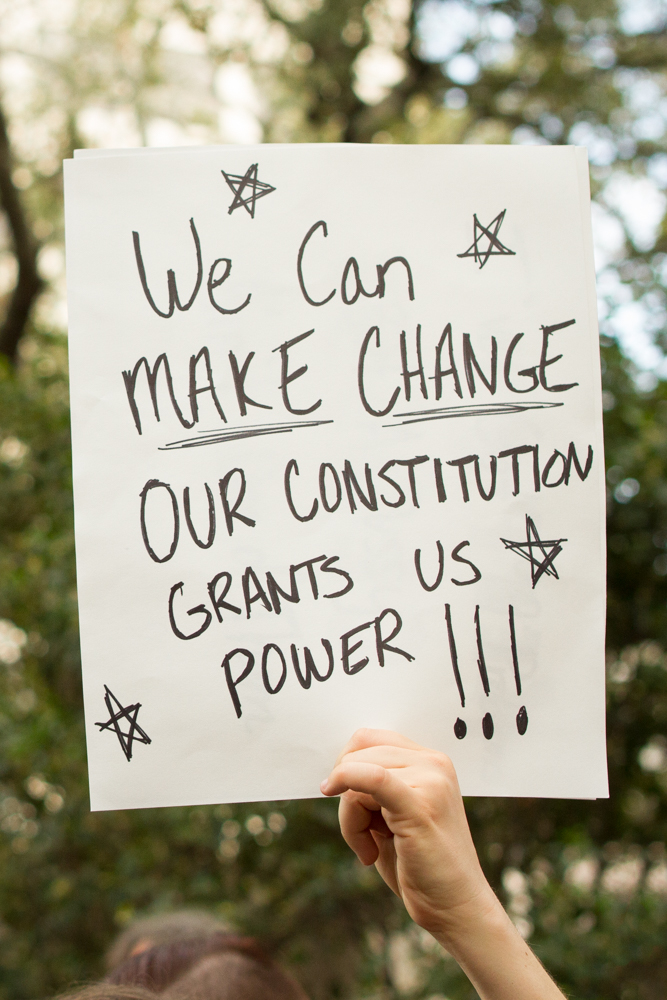 We Can
MAKE CHANGE
OUR CONSTITUTION
GRANTS US
POWER !!!